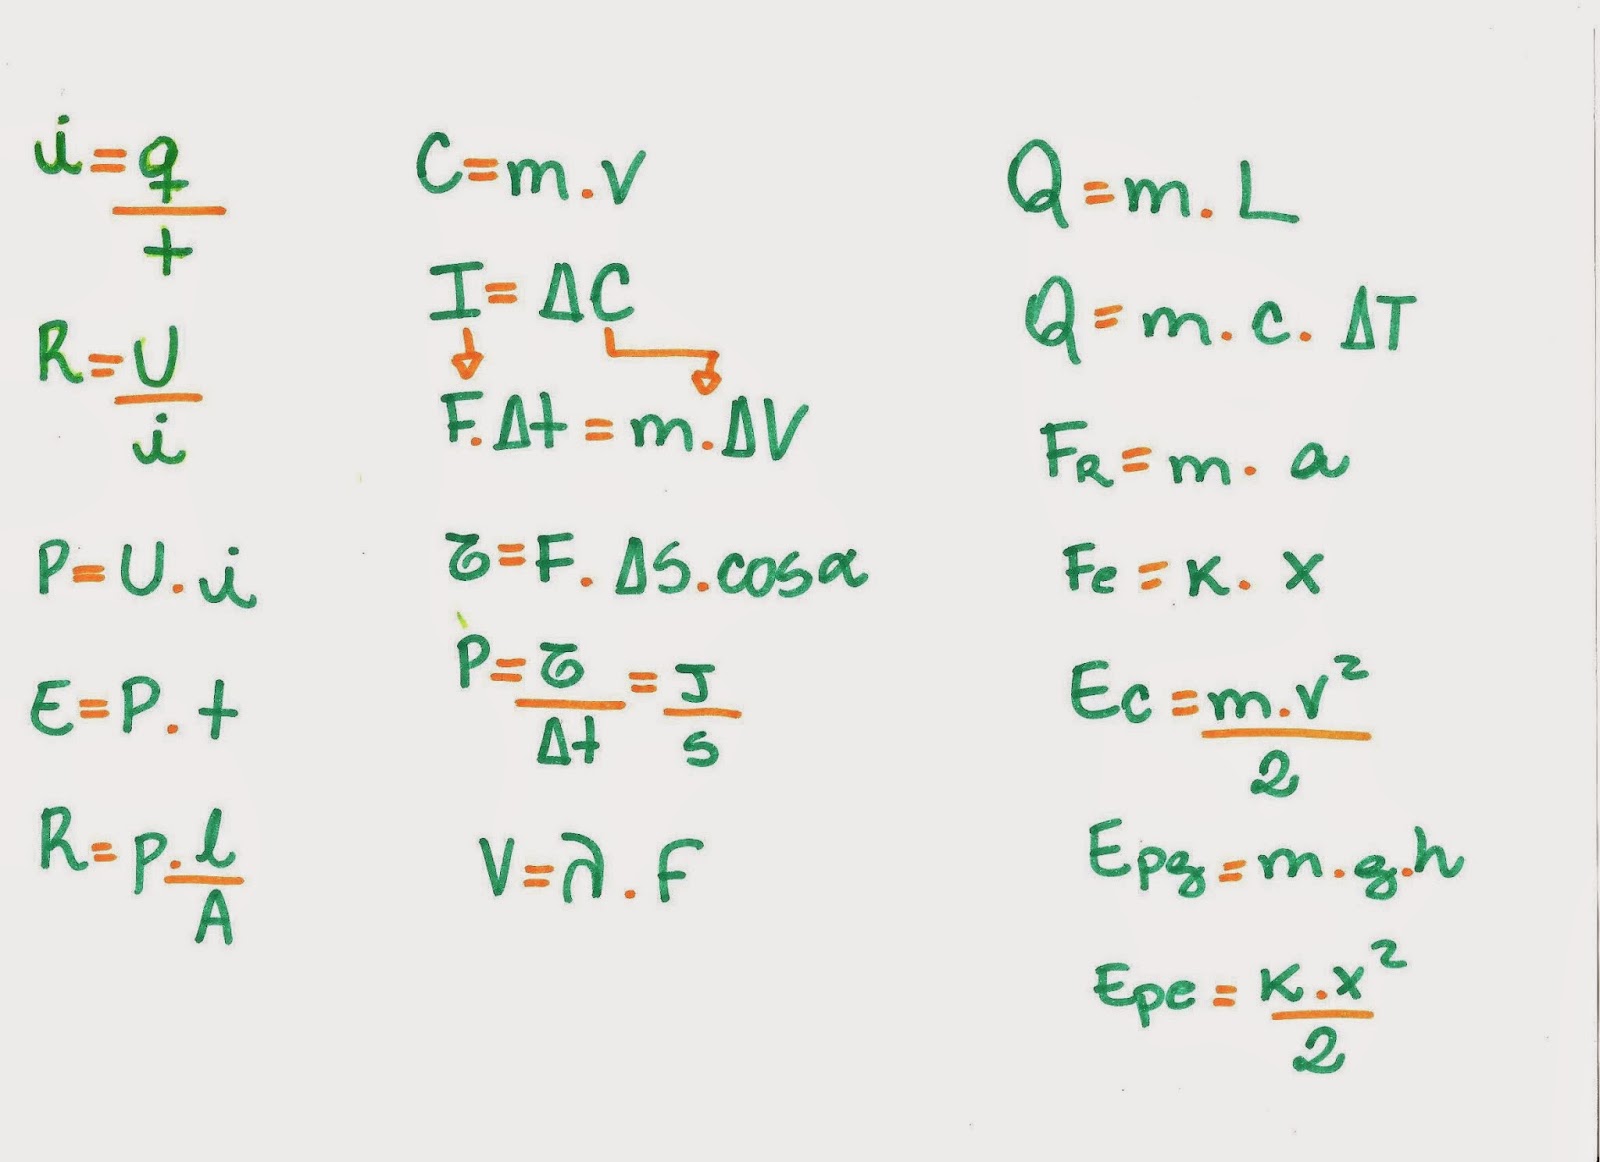 i = q / t
R = U / i
P = U . i
E = P . t
R = p . l / A
C = m . v
I = ΔC
F . Δt = m . ΔV
τ = F . ΔS . cosα
P = τ / Δt = J / s
V = λ . F
Q = m . L
Q = m . c . ΔT
FR = m . a
Fe = K . x
Ec = m . v² / 2
Epg = m . g . h
Epe = K . x² / 2